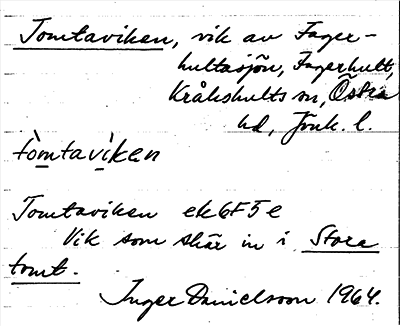 Tomtaviken, vik av Fager-
hultasjön, Fagerhult,
Kråkshults sn, Östra
hd, Jönk. l.
tòmtavìken
Tomtaviken ek 6F5e
Vik som skär in i Stora
tomt.
Inger Danielsson 1964.